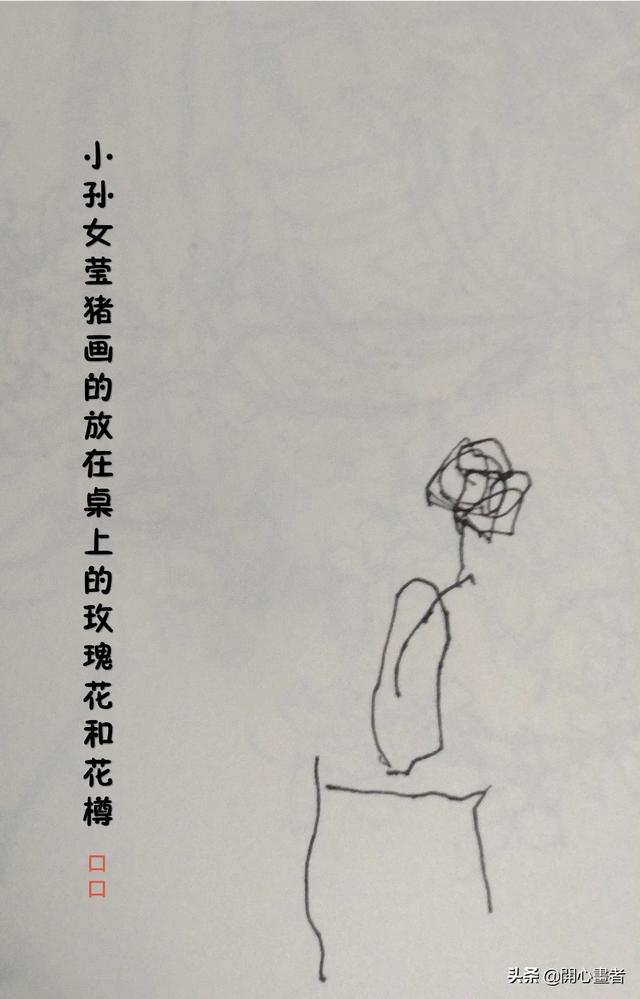 小孙女莹猪画的放在桌上的玫瑰花和花樽
口
口
头条 @開心畫者